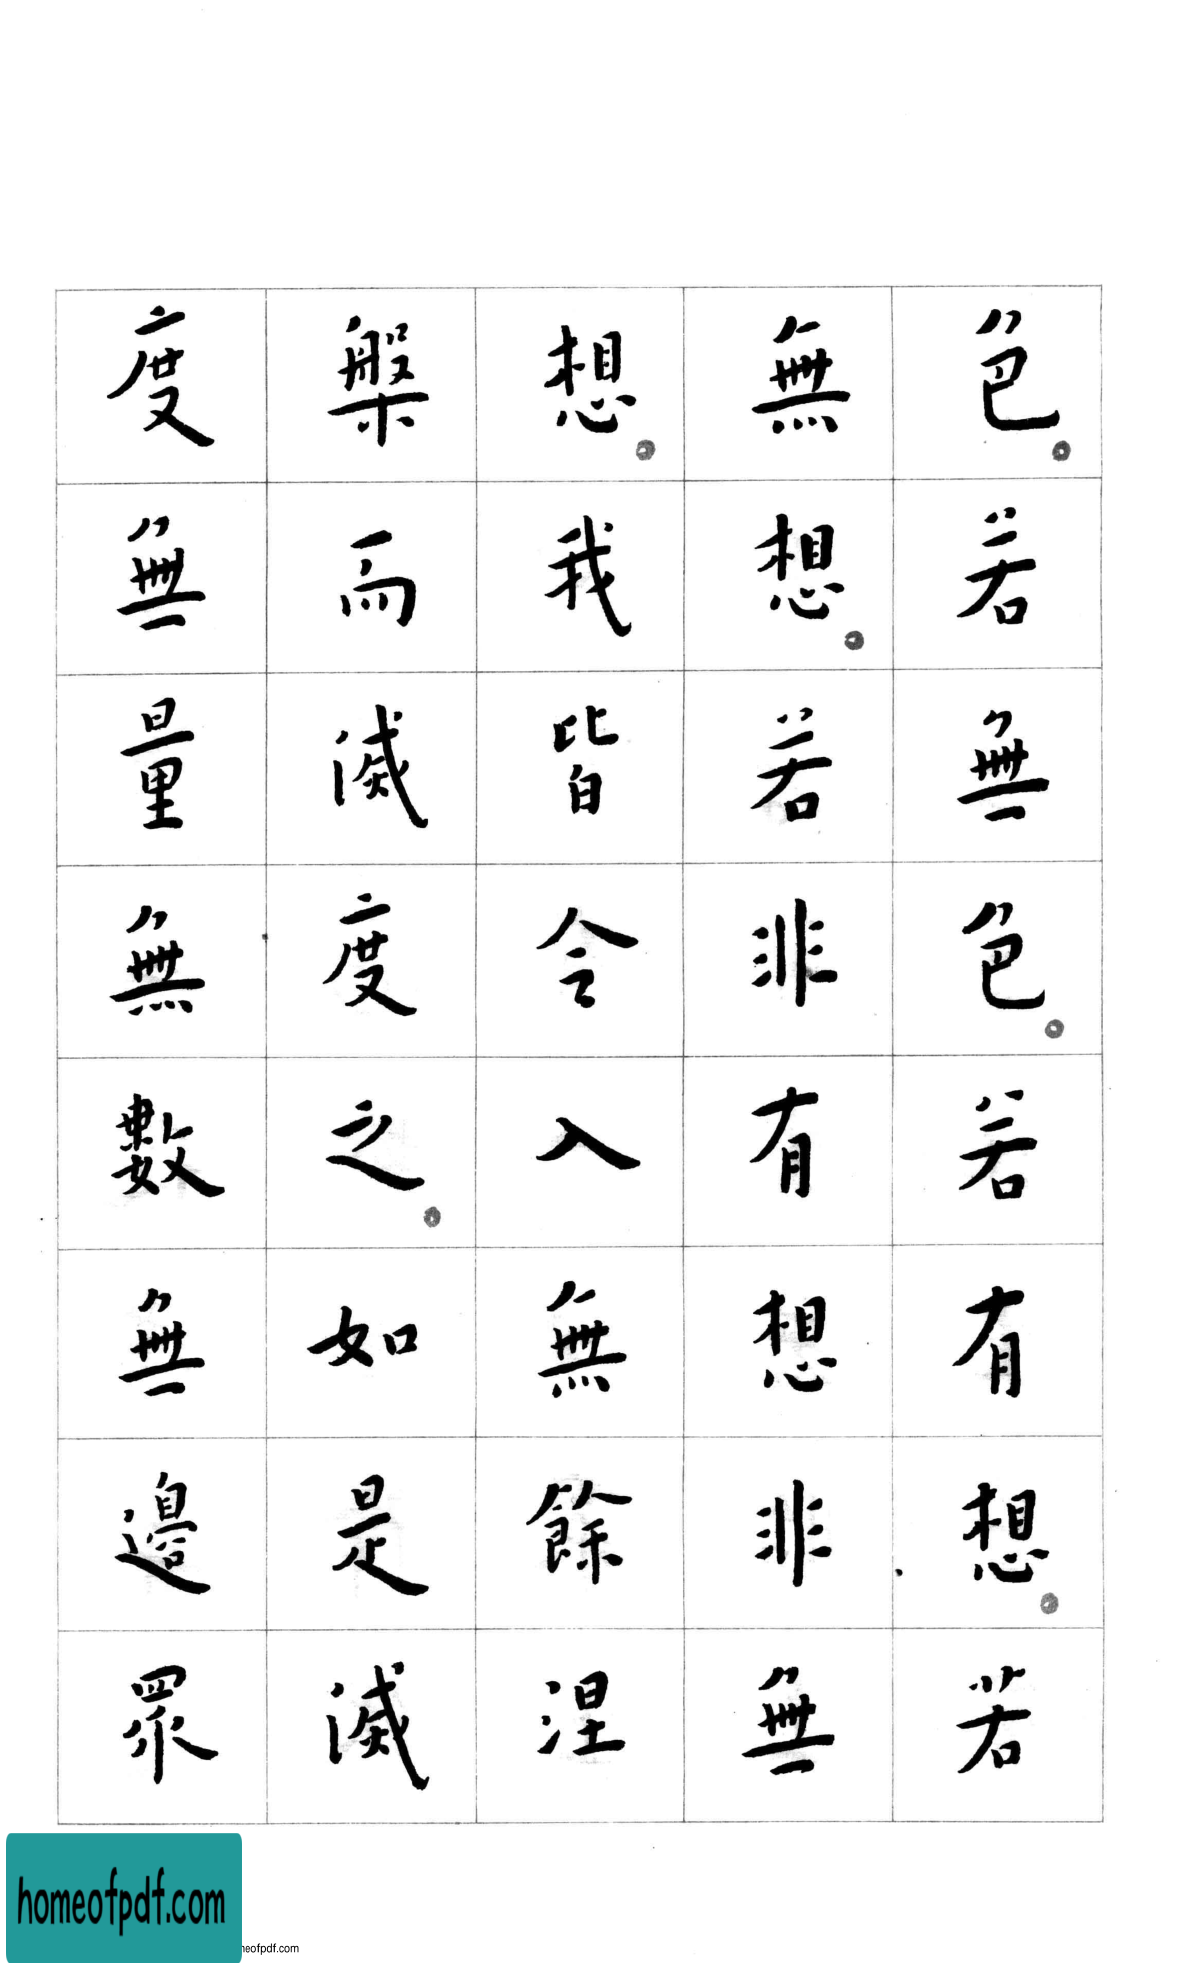 色。若無色。若有想。若
無想。若非有想非無
想。我皆令入無餘涅
槃而滅度之。如是滅
度無量無數無邊眾
homeofpdf.com
neofpdf.com